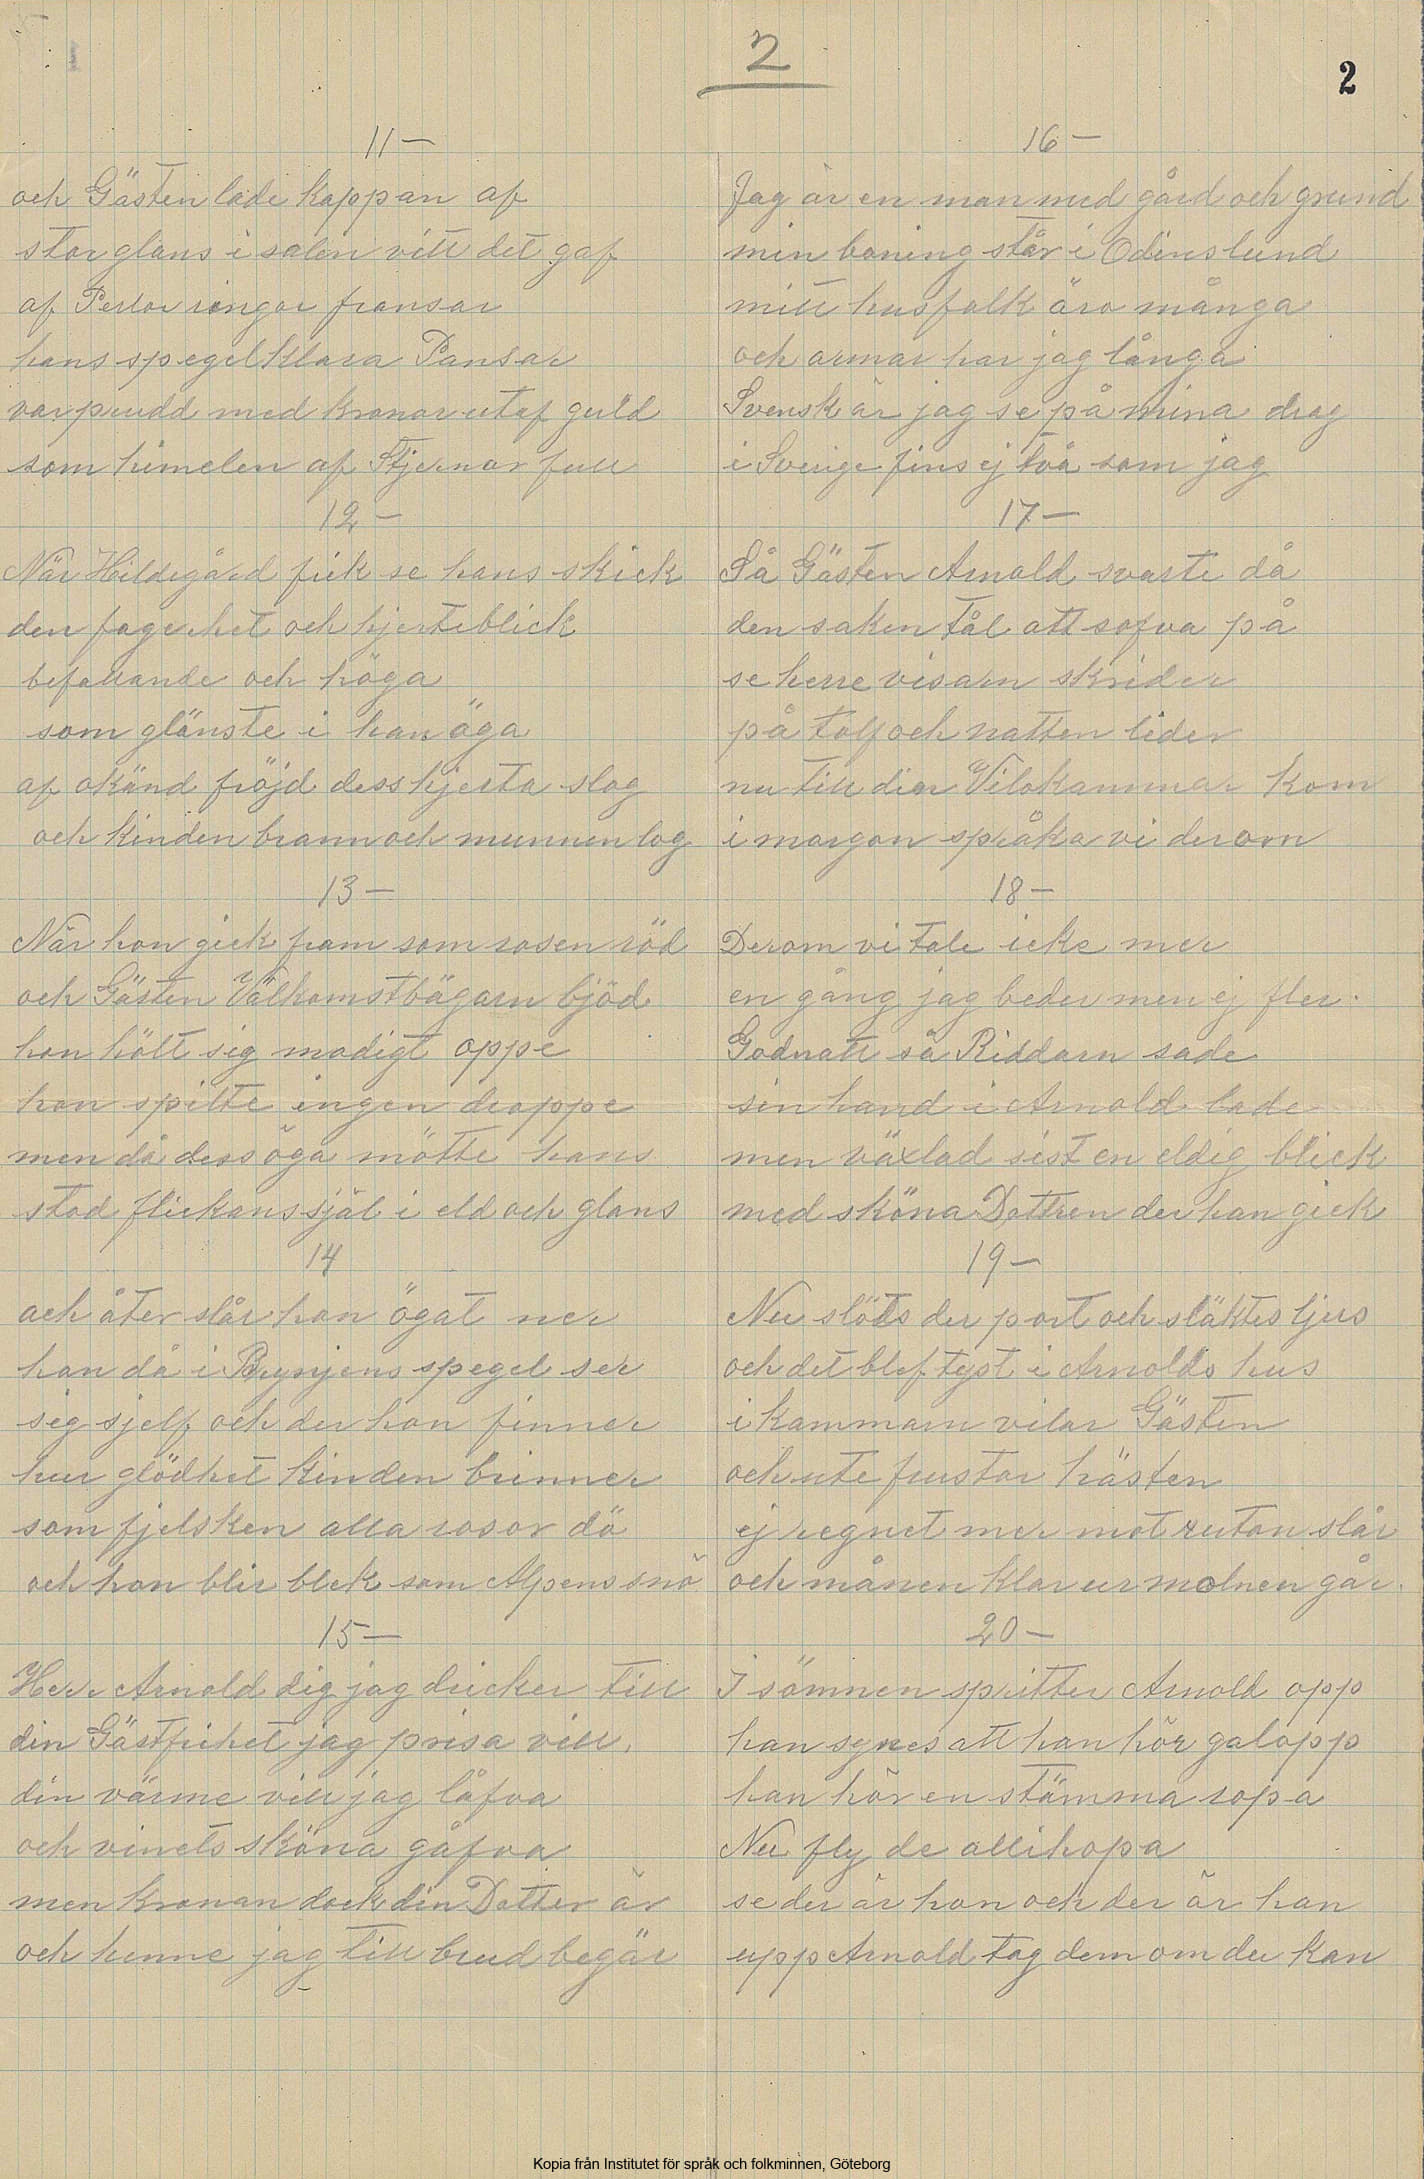 2
2
11 —
och Gästen lade kappan af
stor glans i salen vitt det gaf
af Perlor ringar fransar
hans spegelklara Pansar
var prudd med kronor utaf guld
som himelen af Stjernor full
12 —
När Hildegård fick se hans skick
den fagerhet och hjerteblick
befallande och höga
som glänste i han öga
af okänd fröjd dess hjerta slog
och kinden brann och munnen log
13 —
När hon gick fram som rosen röd
och Gästen Välkomstbägarn bjöd
hon hölt sig modigt oppe
hon spilte ingen droppe
men då dess öga mötte hans
stod flickans själ i eld och glans
14
och åter slår hon ögat ner
hon då i Brynjens spegel ser
sig sjelf och der hon finner
hur glödhet kinden brinner
som fjelsken alla rosor dö
och hon blir blek som Alpens snö
15 —
Herr Arnold dig jag dricker till
din Gästfrihet jag prisa vill,
din värme vill jag låfva
och vinets sköna gåfva
men kronan dock din Dotter är
och henne jag till brud begär
16 —
Jag är en man med gård och grund
min boning står i Odinslund
mitt husfolk äro många
och armar har jag långa
Svensk är jag se på mina drag
i Sverige fins ej två som jag
17 —
Så Gästen Arnold svarte då
den saken tål att sofva på
se herre visarn skrider
på tolf och natten lider
nu till din Vilokammar kom
i morgon språka vi derom
18 —
Derom vi tale icke mer
en gång jag beder men ej fler.
Godnatt så Riddarn sade
sin hand i Arnold lade
men växlad sist en eldig blick
med sköna Dottren der han gick
19 —
Nu slöts der port och släktes ljus
och det blef tyst i Arnolds hus
i kammarn vilar Gästen
och ute frustar hästen
ej regnet mer mot rutan slår
och månen klar ur molnen går.
20 —
I sömnen spritter Arnold opp
han synes att han hör galopp
han hör en stämma ropa
Nu fly de allihopa
se der är hon och der är han
upp Arnold tag dem om du kan
Kopia från Institutet för språk och folkminnen, Göteborg